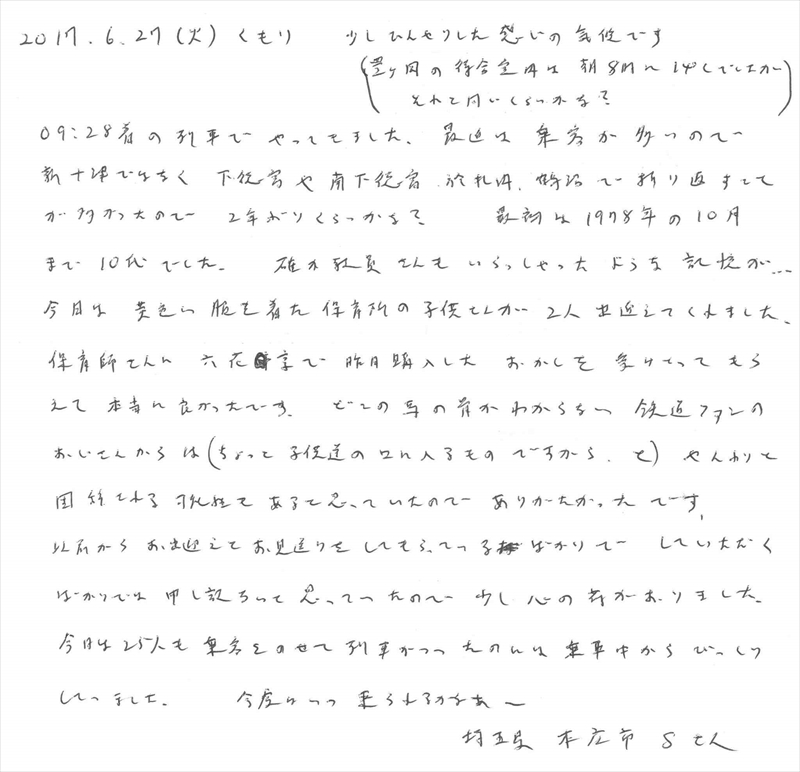 2017.6.27(火) くもり 少しひんやりした感じの気候です
(豊ヶ岡の待合室内は朝8時に14℃でしたが
それと同じくらいかな?)
09:28着の列車でやってきました。最近は乗客が多いので
新十津川ではなく 下徳富や南下徳富、於札内、鶴沼で折り返すこと
が多かったので 2年ぶりくらいかな? 最初は1978年の10月
まで10代でした。 確か教員さんもいらっしゃったような記憶が…
今日は黄色い服を着た保育所の子供さんが2人出迎えてくれました。
保育師さんに 六花亭で昨日購入した おかしを受けとってもら
えて本当に良かったです。どこの馬の骨かわからない 鉄道ファンの
おじさんからは(ちょっと子供達の口に入るものですから、と) やんわりと
固辞される可能性もあると思っていたので ありがたかったです。
以前からお出迎えとお見送りをしてもらっているばかりで していただく
ばかりでは申し訳ないと思っていたので 少し心の荷がおりました。
今日は25人も乗客をのせて列車がついたのには乗車中からびっくり
していました。 今度はいつ乗られるかなあ〜
埼玉県 本庄市 Sさん